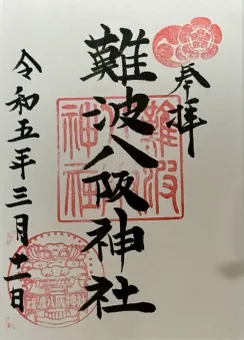 奉拝
難波八阪神社
令和五年三月十一日
難波
神社
難波八阪神社